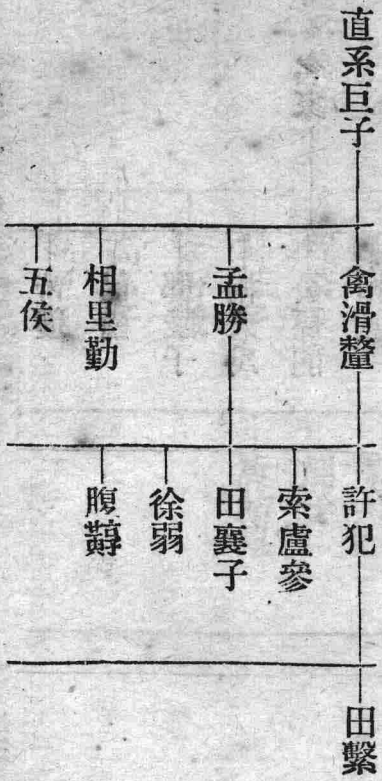 直系巨子
禽滑釐
孟勝
相里勤
五侯
許犯
索盧參
田襄子
徐弱
腹䵍
田繫